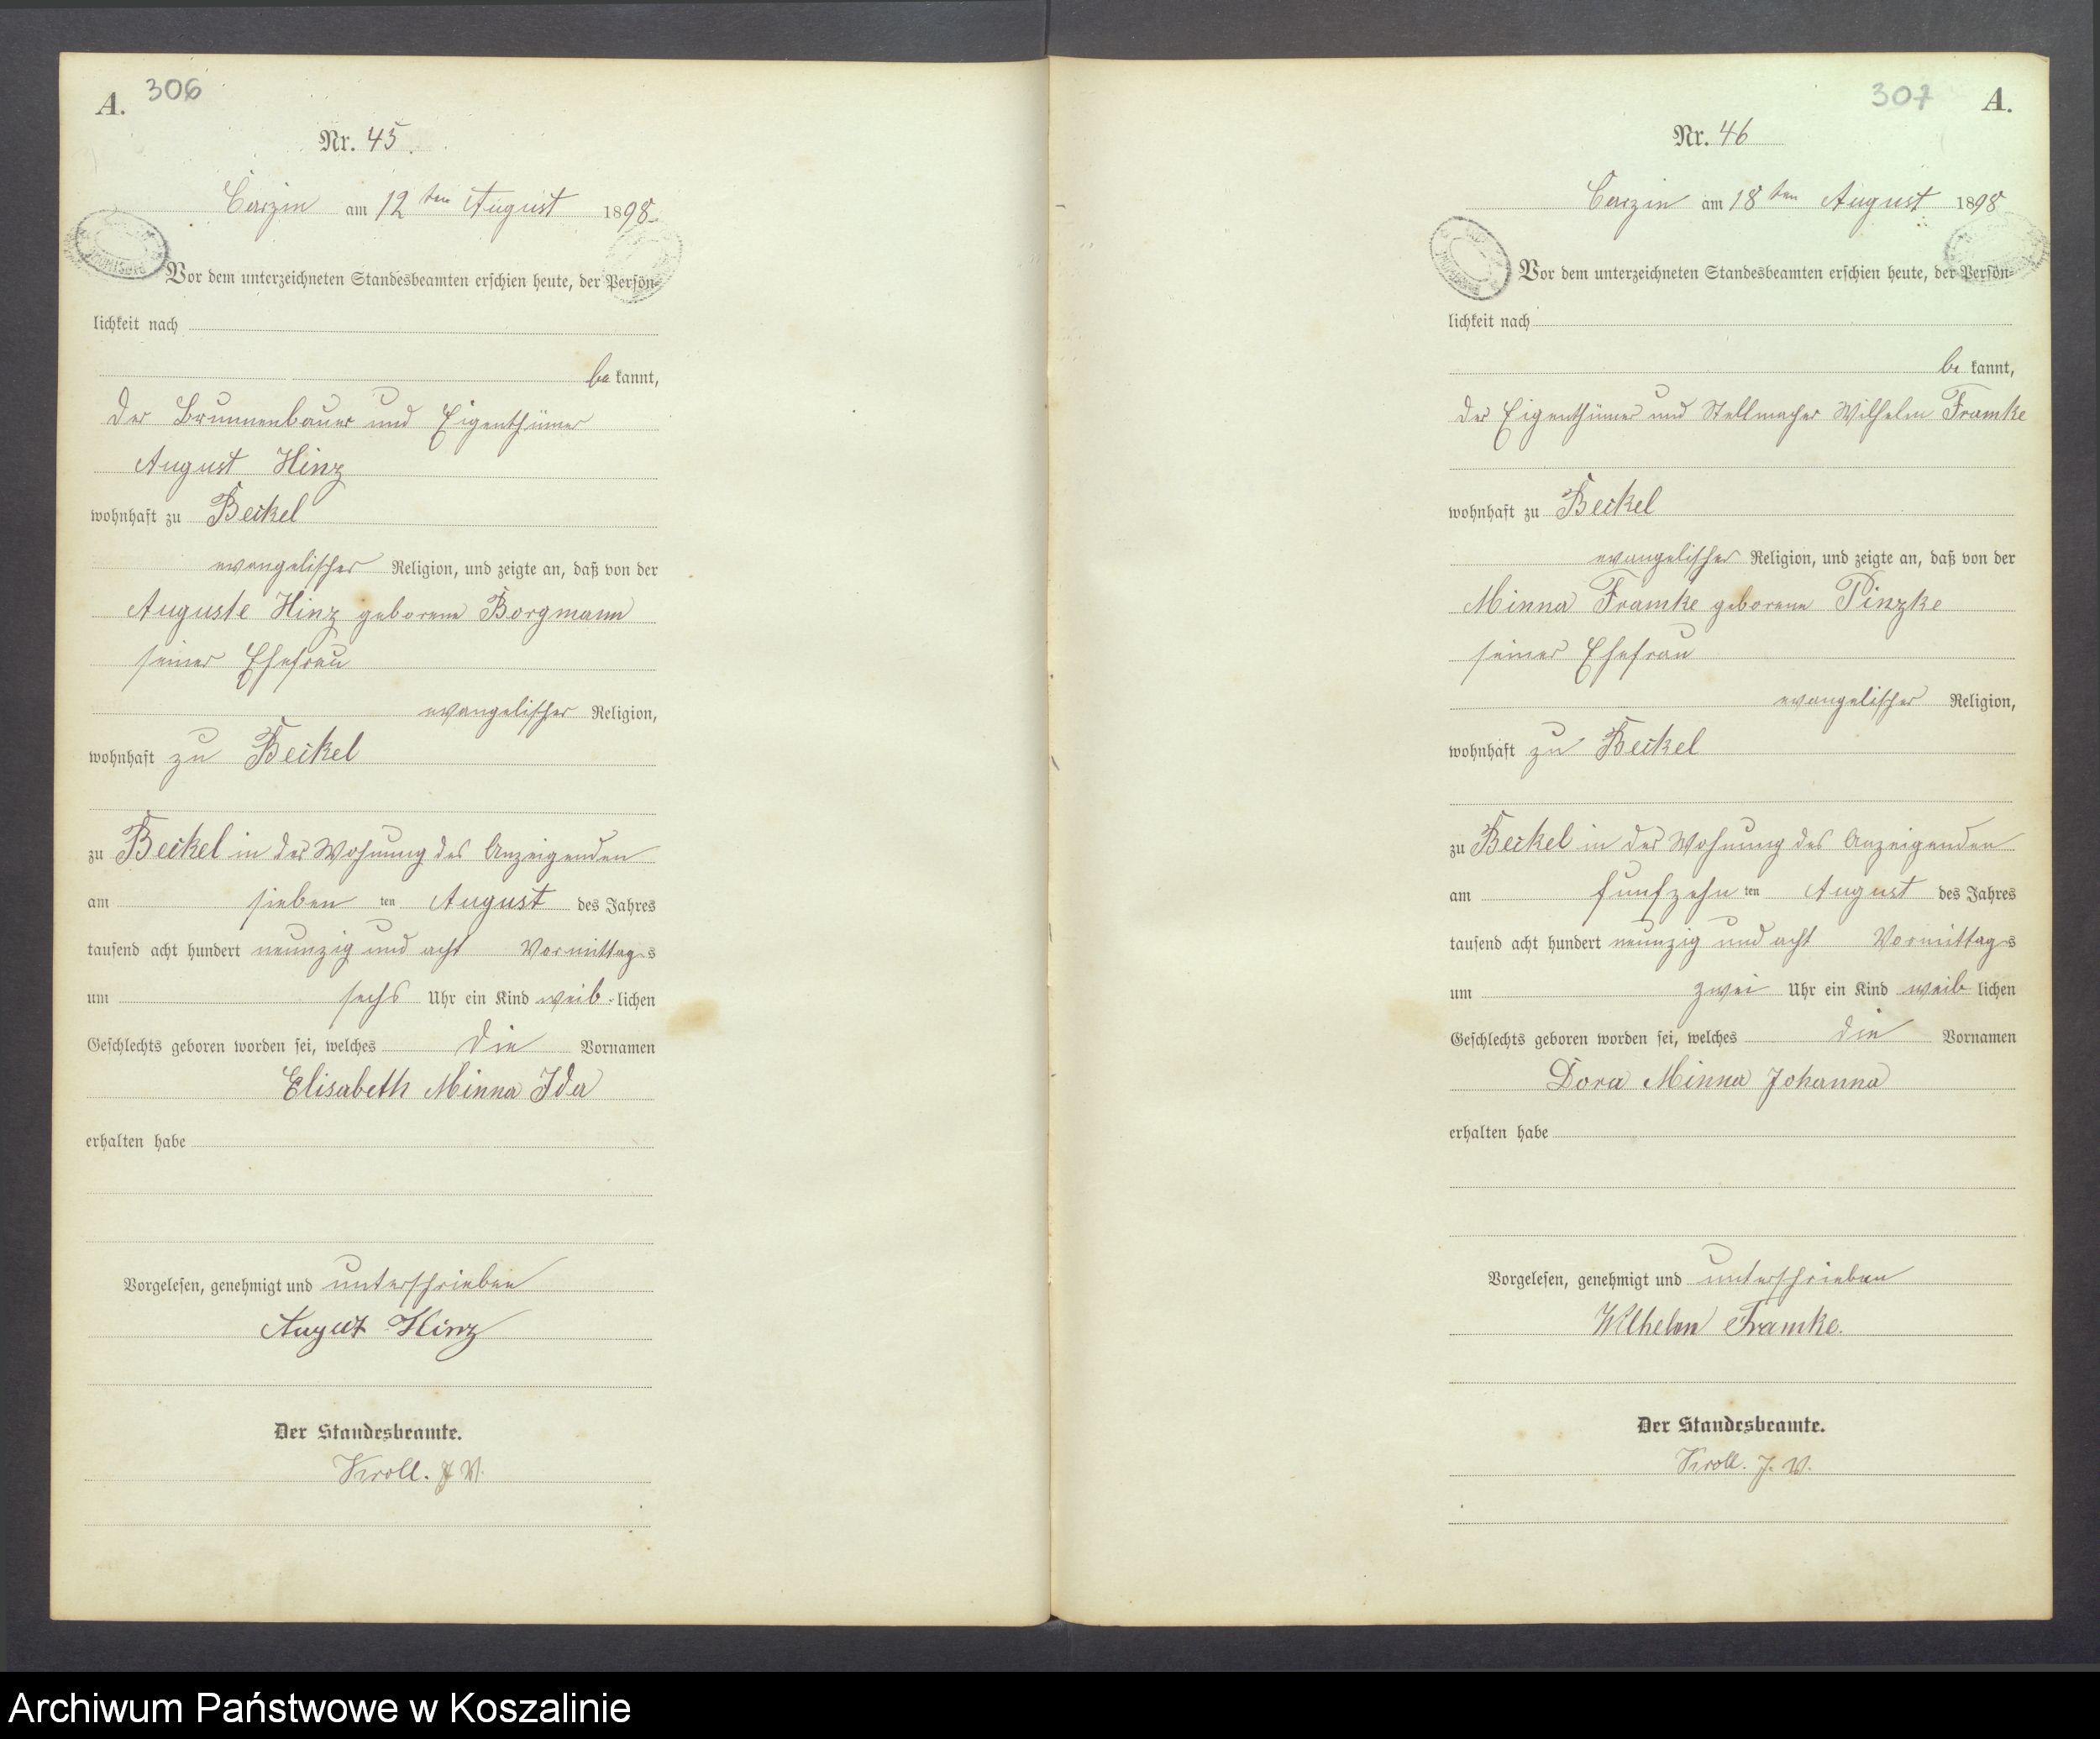 A. 306
Nr. 45.
Carzin am 12ten August 1898
Vor dem unterzeichneten Standesbeamten erschien heute, der Persön-
lichkeit nach
be kannt,
der Brunnenbauer und Eigenthümer
August Hinz
wohnhaft zu Beckel
evangelischer Religion, und zeigte an, daß von der
Auguste Hinz geborene Borgmann
seiner Ehefrau
evangelischer Religion,
wohnhaft zu Beckel
zu Beckel in der Wohnung des Anzeigenden
am sieben ten August des Jahres
tausend acht hundert neunzig und acht Vormittags
um sechs Uhr ein Kind weib-lichen
Geschlechts geboren worden sei, welches die Vornamen
Elisabeth Minna Ida
erhalten habe
Vorgelesen, genehmigt und unterschrieben
August Hinz
Der Standesbeamte.
Kroll. J. V.
307 A.
Nr. 46
Carzin am 18ten August 1898
Vor dem unterzeichneten Standesbeamten erschien heute, der Persön-
lichkeit nach
be kannt,
der Eigenthümer und Stellmacher Wilhelm Framke
wohnhaft zu Beckel
evangelischer Religion, und zeigte an, daß von der
Minna Framke geborene Pinzke
seiner Ehefrau
evangelischer Religion,
wohnhaft zu Beckel
zu Beckel in der Wohnung des Anzeigenden
am fünfzehn ten August des Jahres
tausend acht hundert neunzig und acht Vormittags
um zwei Uhr ein Kind weib lichen
Geschlechts geboren worden sei, welches die Vornamen
Dora Minna Johanna
erhalten habe
Vorgelesen, genehmigt und unterschrieben
Wilhelm Framke.
Der Standesbeamte.
Kroll. J. V.
Archiwum Państwowe w Koszalinie